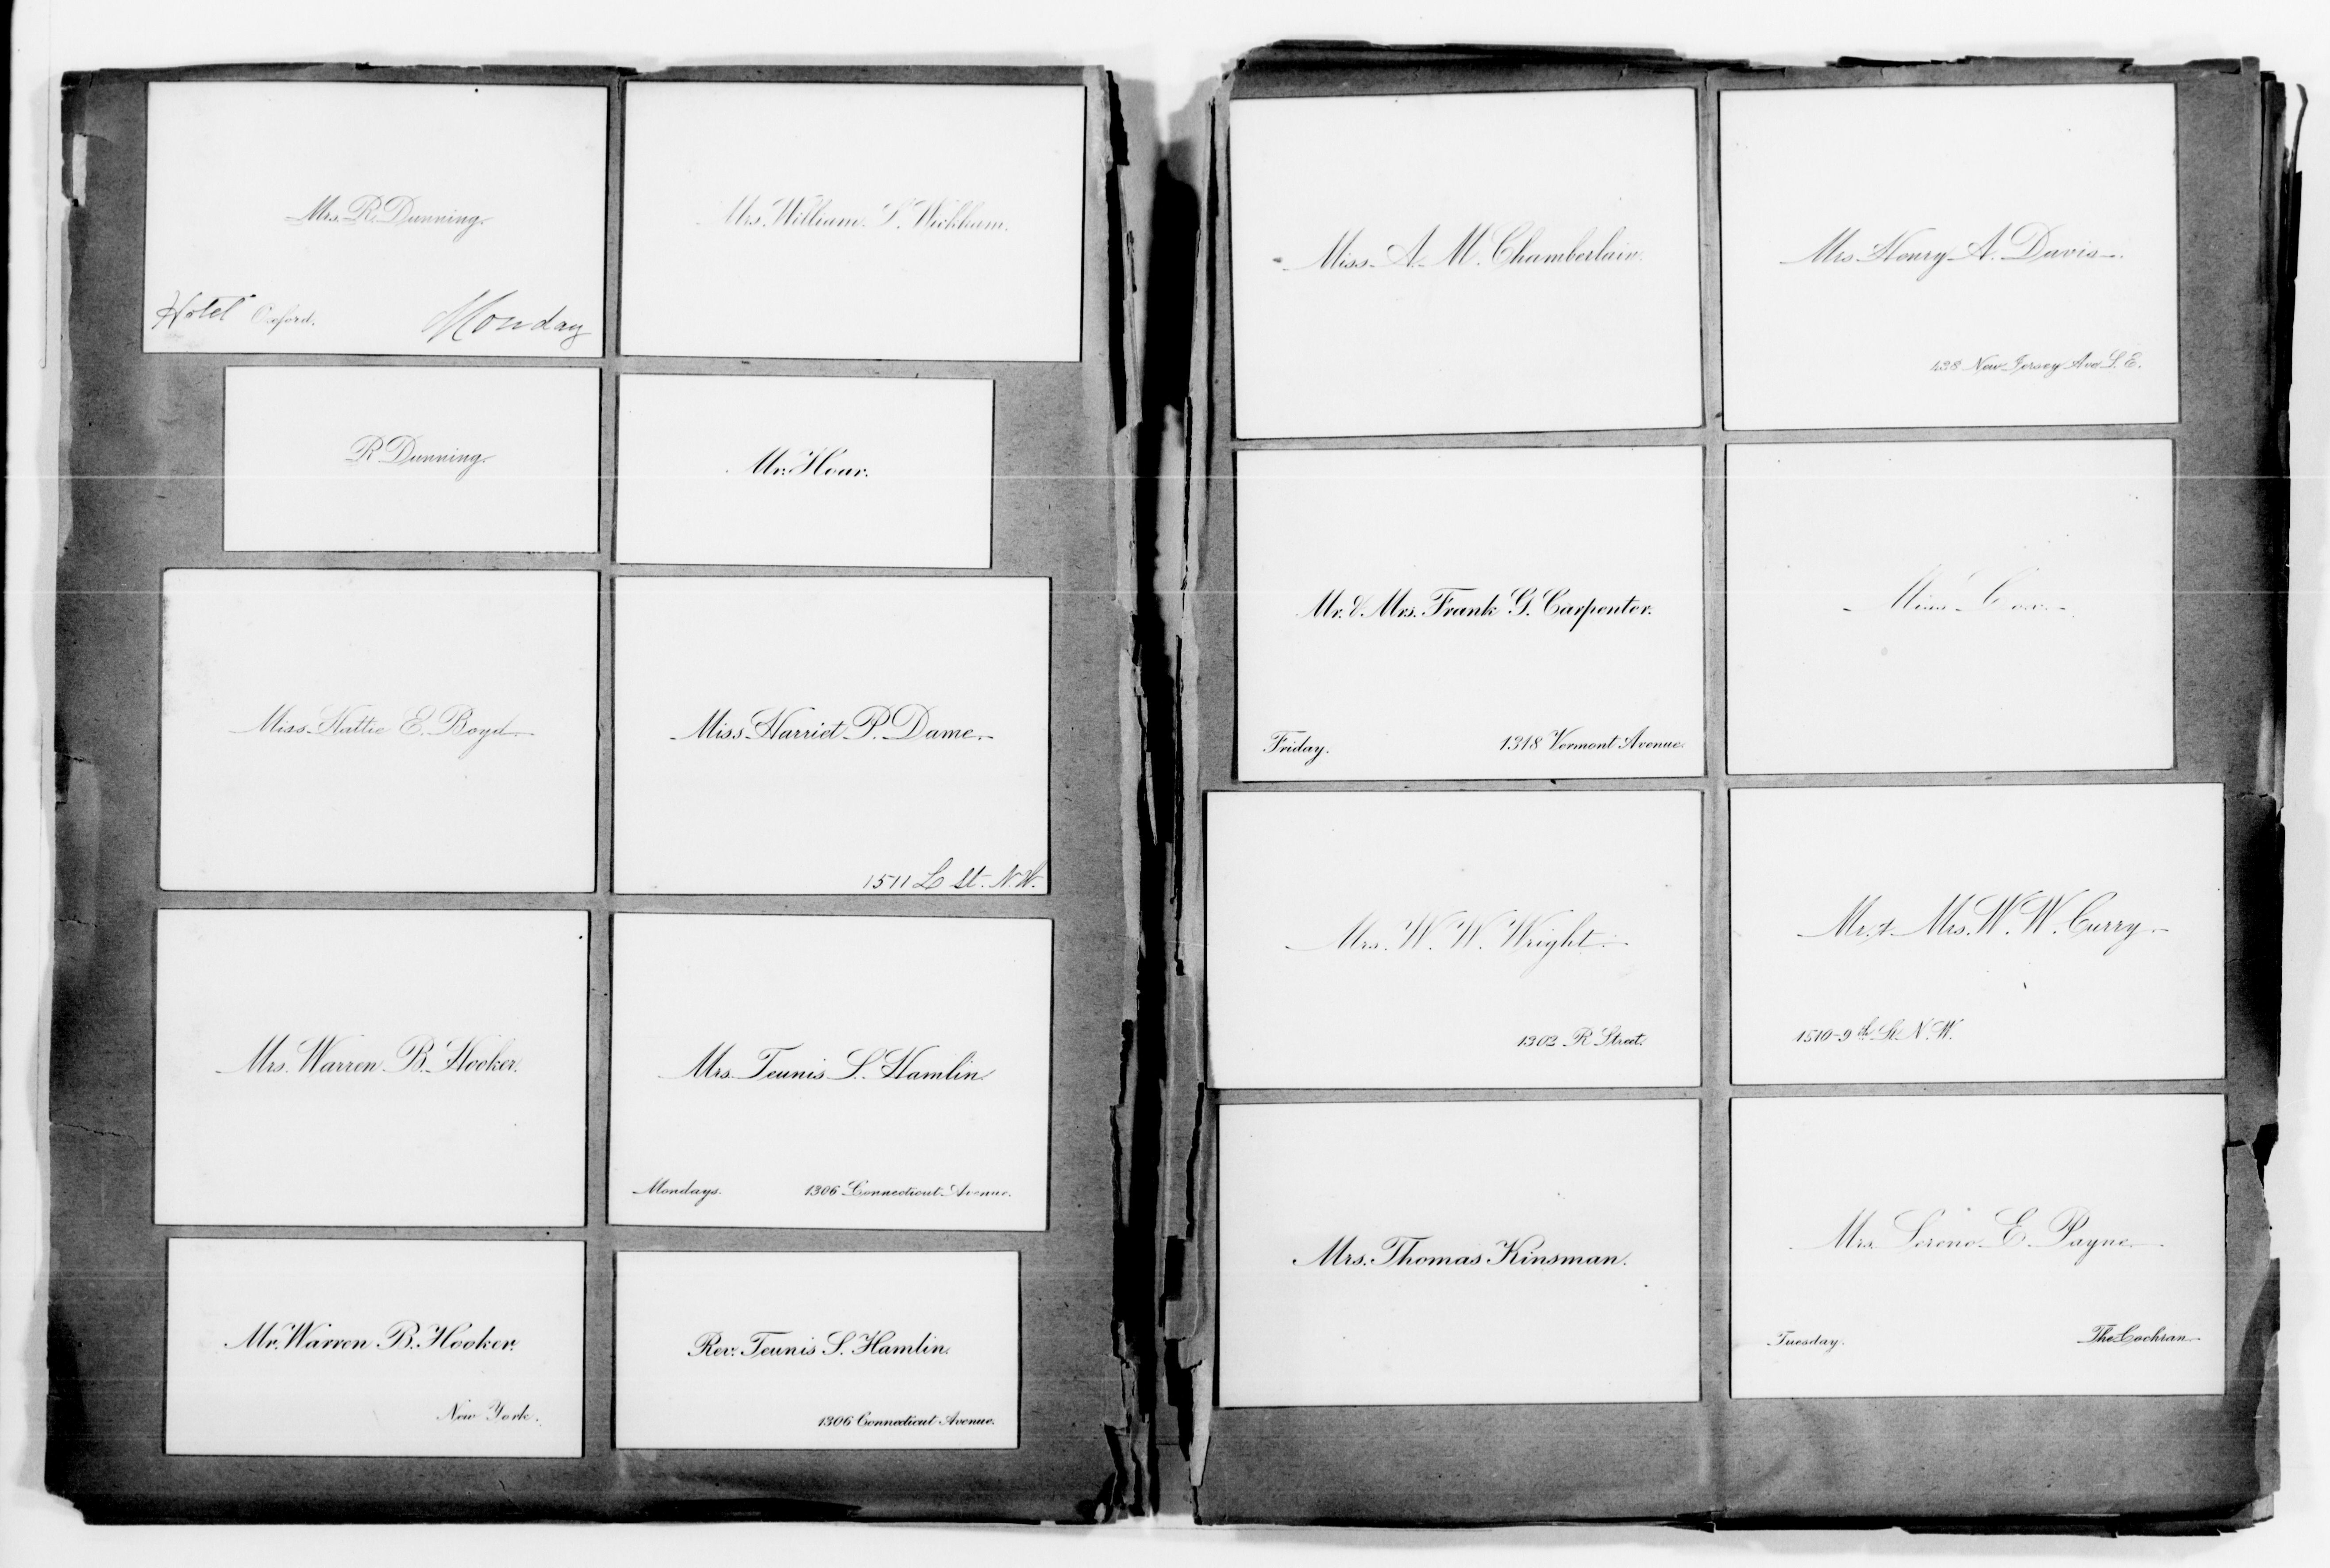 Mrs. R. Dunning.
Hotel Oxford.
Monday
Mrs. William S. Wickham.
R Dunning.
Mr. Hoar.
Miss Hattie E. Boyd.
Miss Harriet P. Dame.
1511 L St. N.W.
Mrs. Warren B. Hooker.
Mrs. Teunis S. Hamlin.
Mondays.
1306 Connecticut Avenue.
Mr. Warren B. Hooker.
New York.
Rev. Teunis S. Hamlin.
1306 Connecticut Avenue.
Miss A. M. Chamberlain.
Mrs. Henry A. Davis.
438 New Jersey Ave S. E.
Mr. & Mrs. Frank G. Carpenter.
Friday.
1318 Vermont Avenue.
Miss Cox.
Mrs. W. W. Wright.
1302 R Street.
Mr. & Mrs. W. W. Curry.
1510-9th St. N. W.
Mrs. Thomas Kinsman.
Mrs. Sereno E. Payne.
Tuesday.
The Cochran